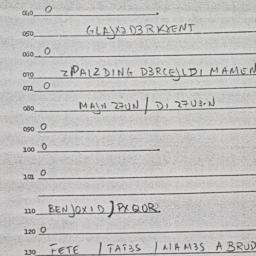 040 0
050 GLAJX2 D3RKYENT
060 0
070 ZPAIZDING D3RCEJLDI MAMEN
071 0
080 MAJN 27UN / DI 27U3RN
090 0
100 0
101 0
110 BENJOXID J PXQOR2
120 0
130 FETE / TAT3S / NAM3S A BRUD